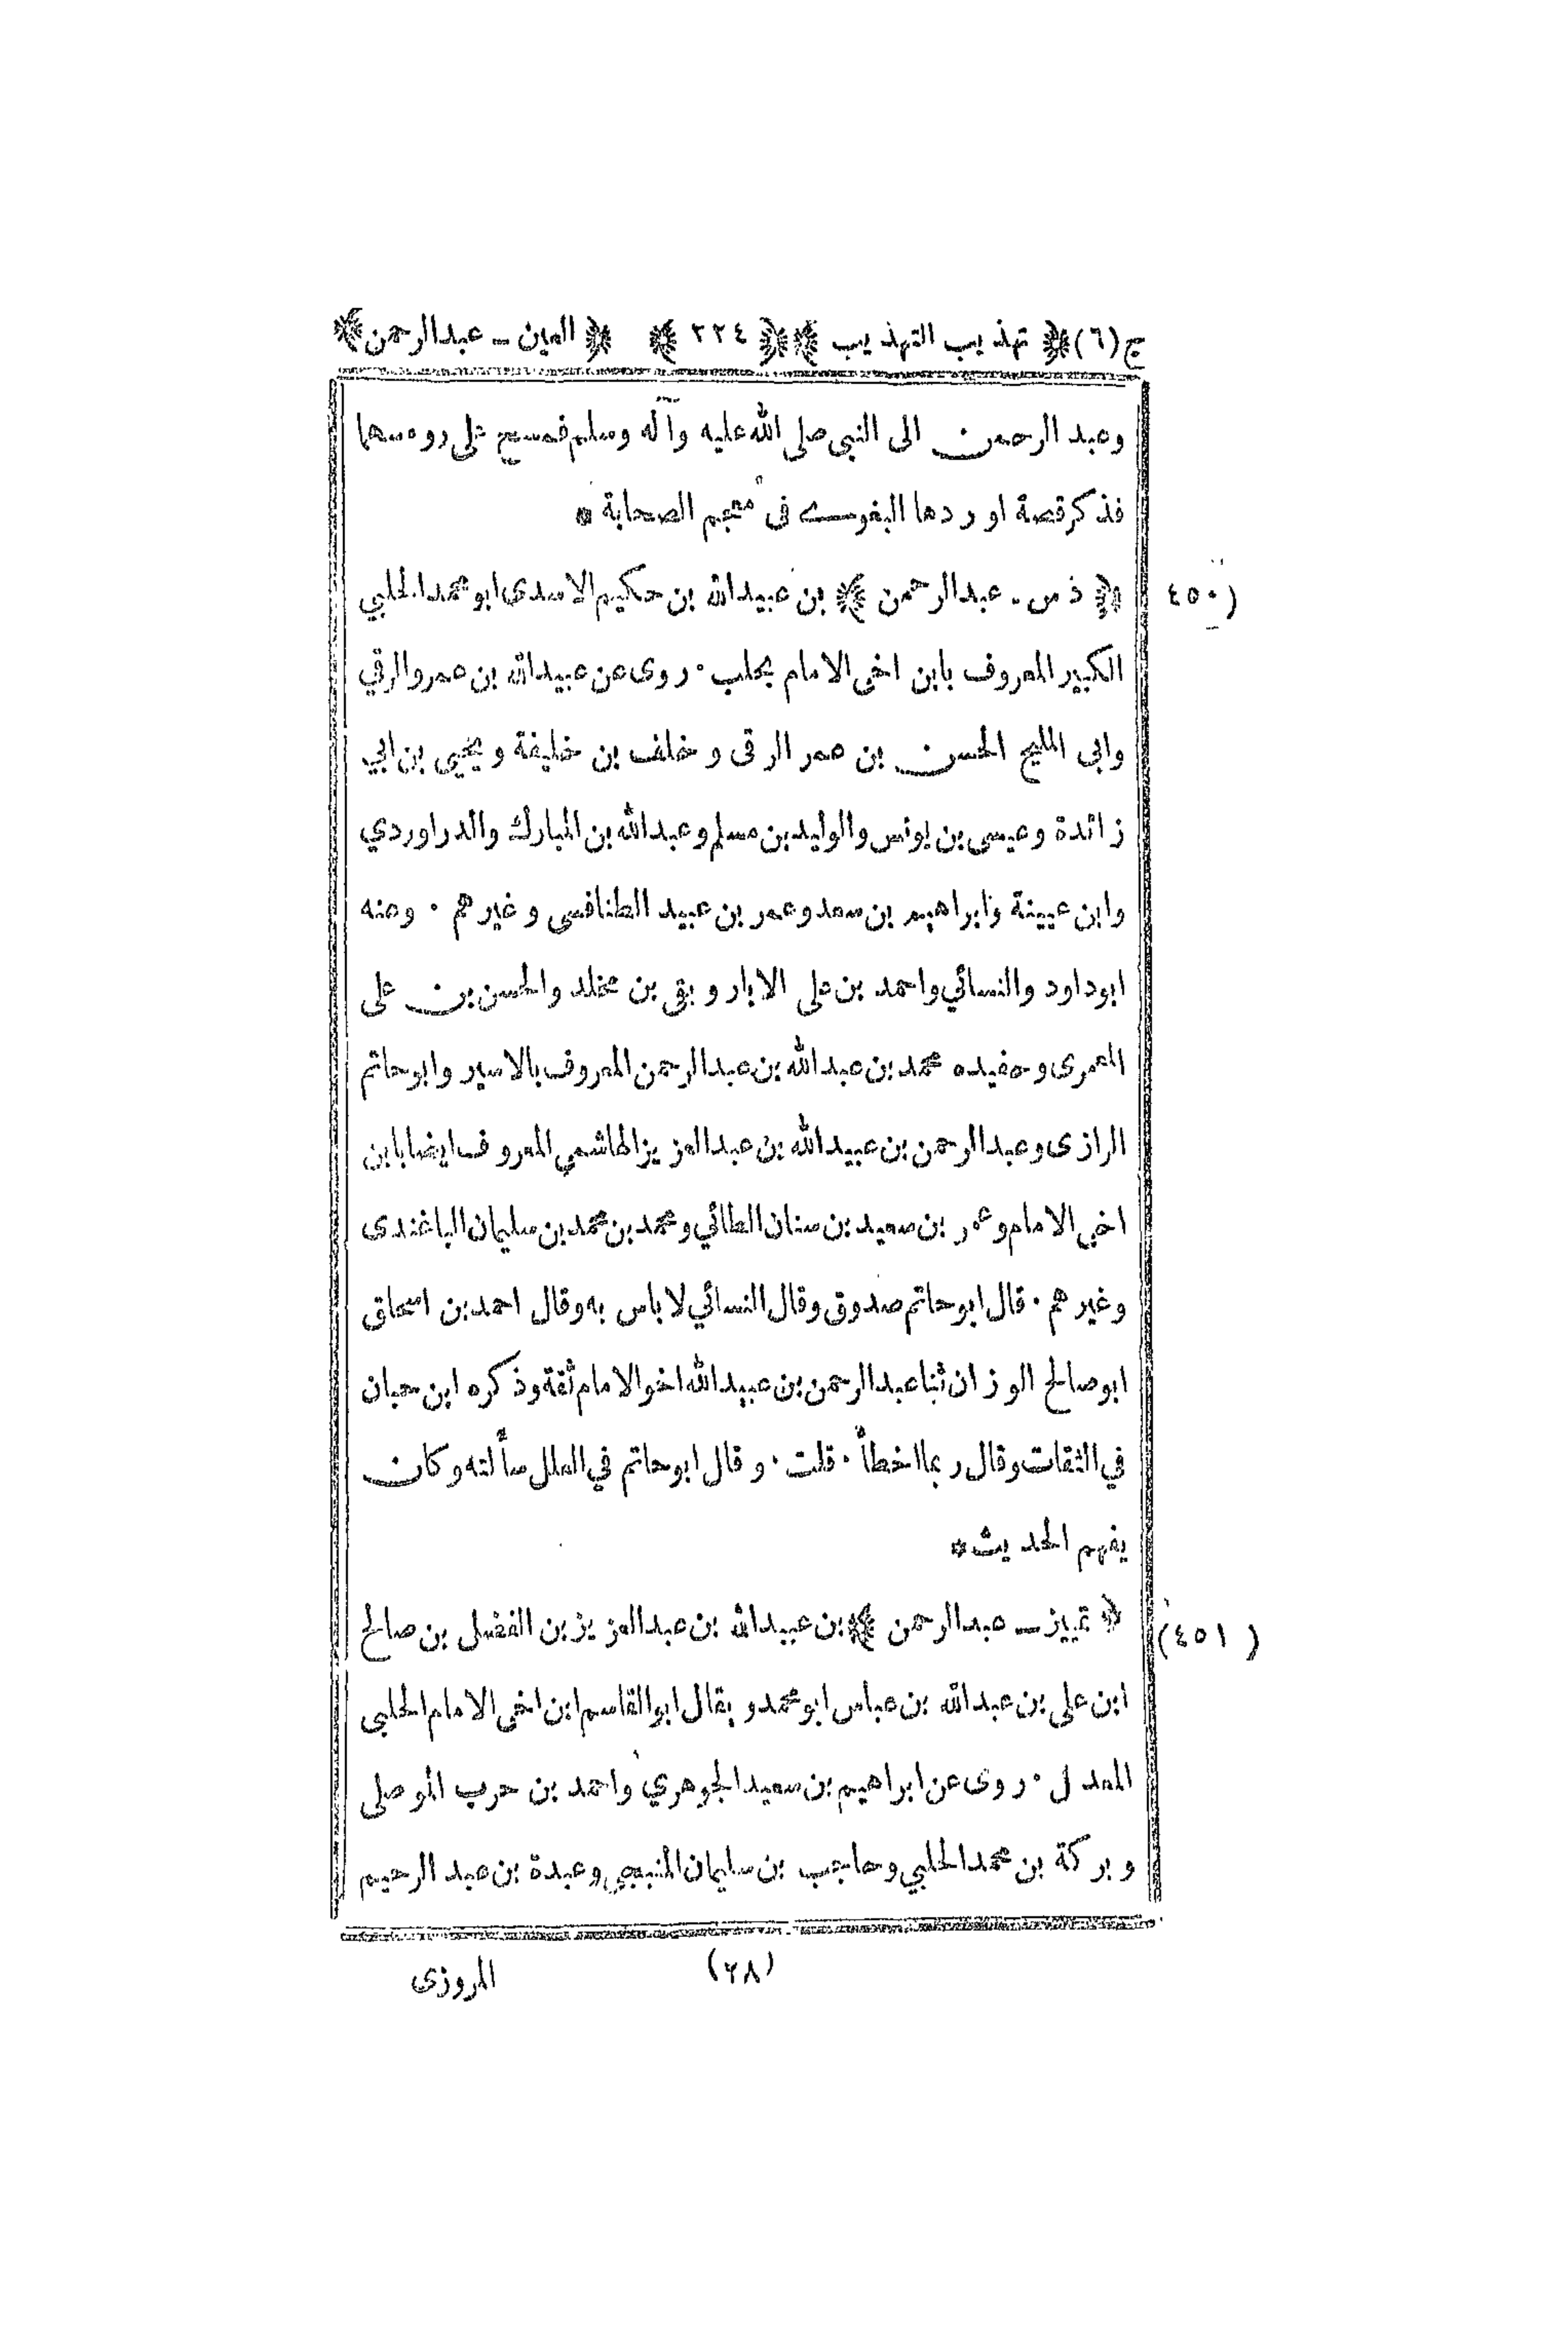 ج(٦)﴿ تهذيب التهذيب ﴾﴿ ٢٢٤ ﴾ ﴿ العين - عبدالرحمن﴾
وعبد الرحمن الى النبي صلى الله عليه وآله وسلم فمسح على روءسهما
فذكر قصة اوردها البغوى فى معجم الصحابة *
(٤٥٠ ﴿ د س - عبدالرحمن ﴾ بن عبيدالله بن حكيم الاسدى ابو محمد الحلبي
الكبير المعروف بابن اخى الامام بحلب ٠ روى عن عبيدالله بن عمرو الرقي
وابى المليح الحسن بن عمر الرقى و خلف بن خليفة ويحيى بن ابي
زائدة وعيسى بن يونس والوليد بن مسلم وعبدالله بن المبارك والدراوردي
وابن عيينة وابراهيم بن سعد وعمر بن عبيد الطنافسى وغيرهم ٠ وعنه
ابوداود والنسائي واحمد بن على الابار و بقى بن مخلد والحسن بن على
المعمرى وحفيده محمد بن عبدالله بن عبدالرحمن المعروف بالاسير وابوحاتم
الرازى وعبدالرحمن بن عبيدالله بن عبدالعزيز الهاشمي المعروف ايضا بابن
اخى الامام وعمر بن سعيد بن سنان الطائي ومحمد بن محمد بن سليمان الباغندى
وغيرهم ٠ قال ابوحاتم صدوق وقال النسائي لا باس به وقال احمد بن اسحاق
ابوصالح الوزان ثنا عبدالرحمن بن عبيدالله اخو الامام ثقة وذكره ابن حبان
في الثقات وقال ربما اخطأ ٠ قلت ٠ وقال ابوحاتم في العلل سألته وكان
يفهم الحديث *
(٤٥١) ﴿ تمييز - عبدالرحمن ﴾ بن عبيدالله بن عبدالعزيز بن الفضل بن صالح
ابن علي بن عبدالله بن عباس ابو محمد ويقال ابوالقاسم ابن اخى الامام الحلبي
المعدل ٠ روى عن ابراهيم بن سعيد الجوهري واحمد بن حرب الموصلى
وبركة بن محمد الحلبي وحاجب بن سليمان المنبجى وعبدة بن عبد الرحيم
(٢٨) المروزى